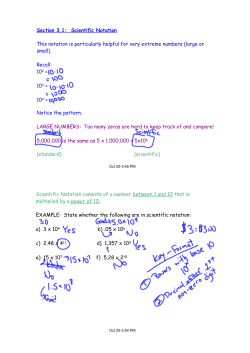 Section 3.1: Scientific Notation
This notation is particularly helpful for very extreme numbers (large or
small).
Recall:
10² = 10·10
= 100
10³ = 10·10·10
= 1000
10⁴ = 10,000
Notice the pattern.
LARGE NUMBERS: Too many zeros are hard to keep track of and compare!
Standard Scientific
5,000,000 is the same as 5 x 1,000,000 = 5x10⁶
(standard) (scientific)
Oct 25-3:48 PM
Scientific Notation consists of a number between 1 and 10 that is
multiplied by a power of 10.
EXAMPLE: State whether the following are in scientific notation:
3.0
a) 3 x 10⁴ Yes b) .05 x 10⁸ No
$3 : $3.00
c) 2.48 x 4 d) 1.357 x 10⁹ Yes
No
e) 15 x 10⁷ f) 5.28 x 2
No
1.5 x 10⁸
Key - Format
1) Powers with base 10
2) Decimal after 1st
non-zero digit
Oct 25-3:54 PM